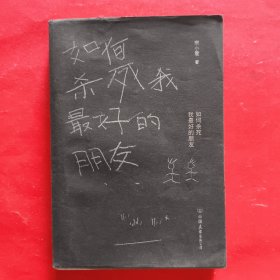 如何
杀死我
最好的
朋友
如何杀死
我最好的朋友
中国友谊出版公司